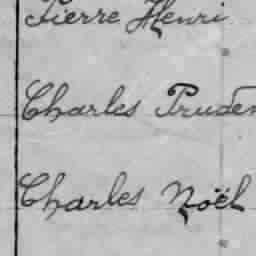 Pierre Henri
Charles Pruden
Charles Noël